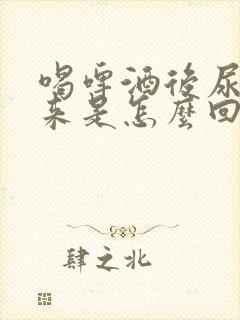 喝啤酒後尿
來是怎麼回
肆之北